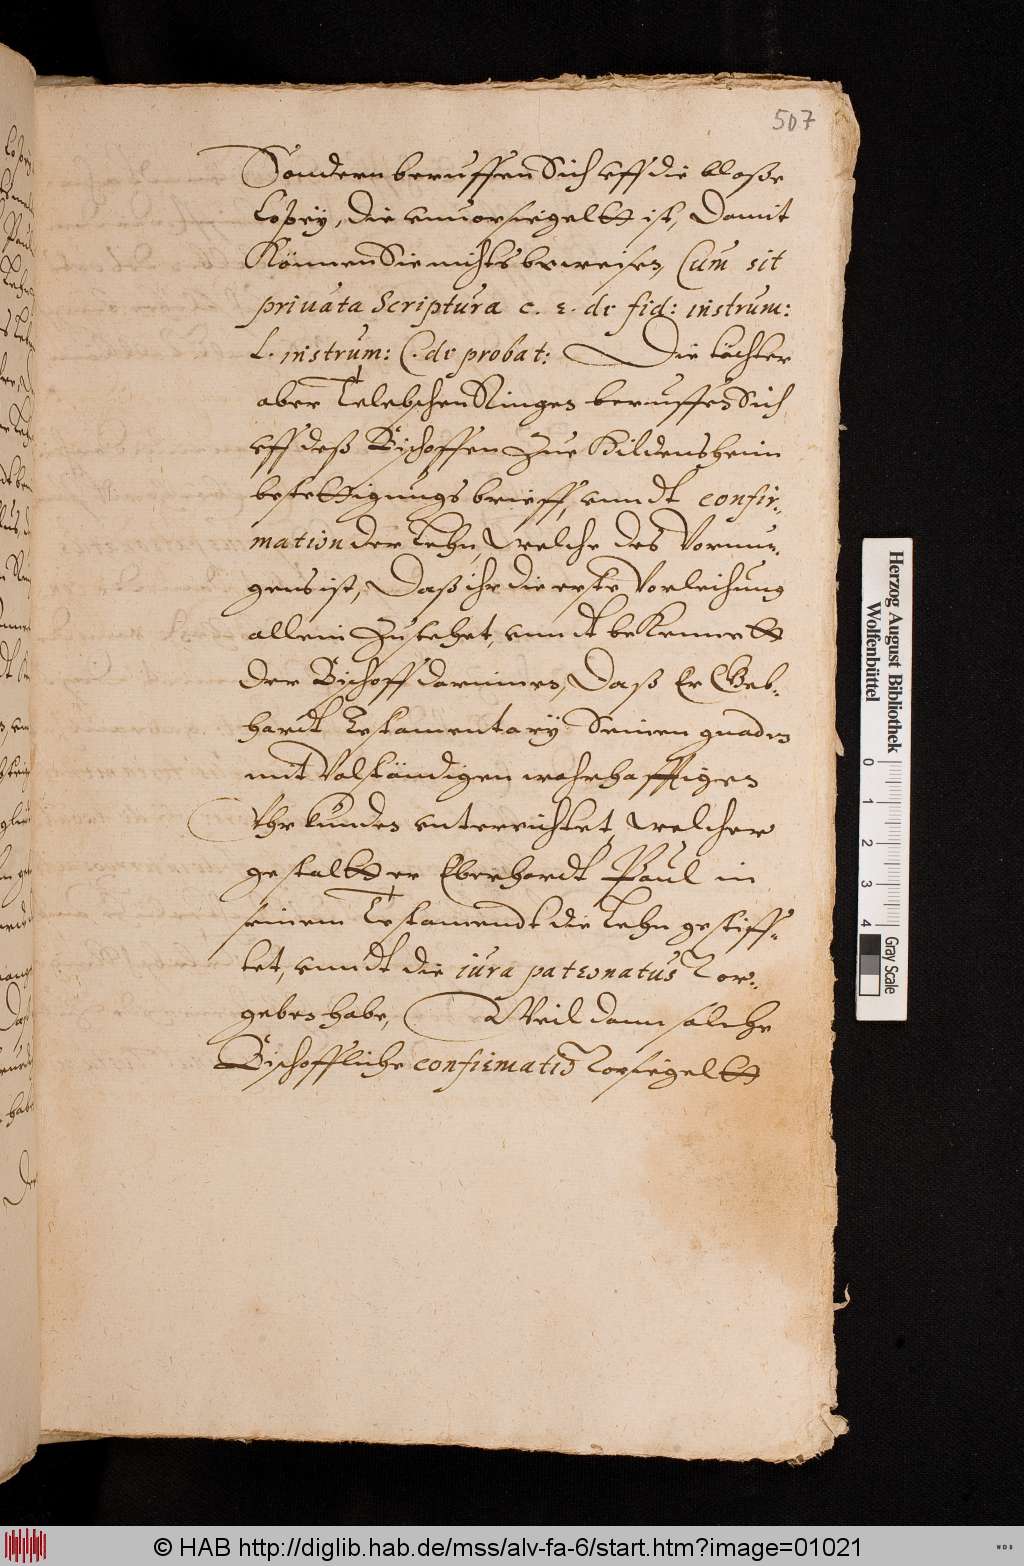 507
Sondern beruffen Sich vff die bloße
Copey, die vnuorsiegeltt ist, Damit
Können Sie nichts beweisen, Cum sit
priuata Scriptura c. 2. de fid: instrum:
L. instrum: C. de probat: Die tochter
aber Beruffen Sich
vff deß Bischoffen Zue Hildensheim
bestettigungs brieff, vnndt confir-
mation der Lehn, welche des Vormu-
gens ist, Daß ihr die erste Vorleihung
allein Zustehet, vnndt bekennett
der Bischoff darinnen, Daß Er Geb-
hardt Testamentary Seinen gnaden
mit Volständigen warhafftigen
Vhrkunden vnterrichtet, welcher
gestaltt er Eberhardt Paul in
seinem Testamendt die Lehn gestiff-
tet, vnndt die iura patronatus Vor-
geben habe, Weil dann solche
Bischoffliche confirmatio Vorsiegeltt
Herzog August Bibliothek
Wolfenbüttel
0 1 2 3 4
Gray Scale
© HAB http://diglib.hab.de/mss/alv-fa-6/start.htm?image=01021
WDB